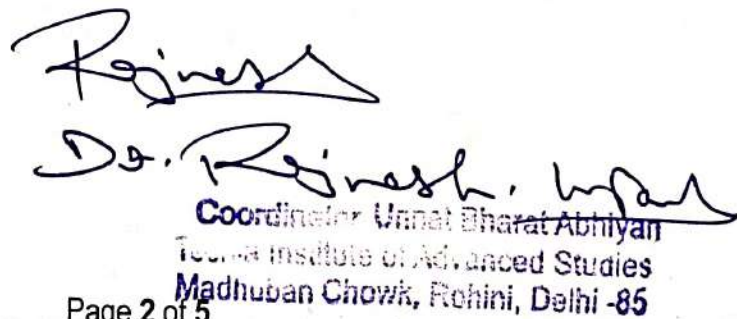 Rajnesh
Dr. Rajnesh.
Coordinator Unnat Bharat Abhiyan
Tecnia Institute of Advanced Studies
Madhuban Chowk, Rohini, Delhi -85
Page 2 of 5